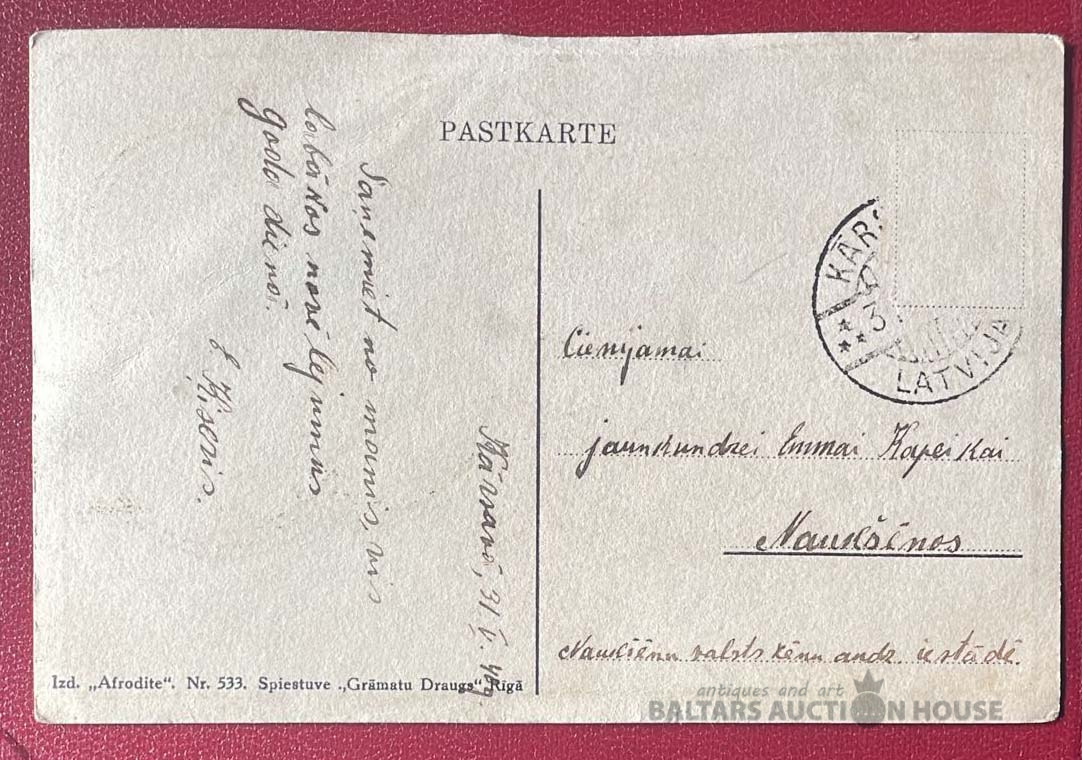 PASTKARTE
Kārsavā, 31 V. 40g.
Saņemiet no manis, vis
labākos novēlejumus
goda dienā.
Ķiseris.
KĀRS
3
LATVIJA
Cienījamai
jaunkundzei Emmai Kapeikai
Naukšēnos
Naukšēnu valsts zēnu audz iestādē.
Izd. „Afrodite“. Nr. 533. Spiestuve „Grāmatu Draugs“ Rīgā
antiques and art
BALTARS AUCTION HOUSE